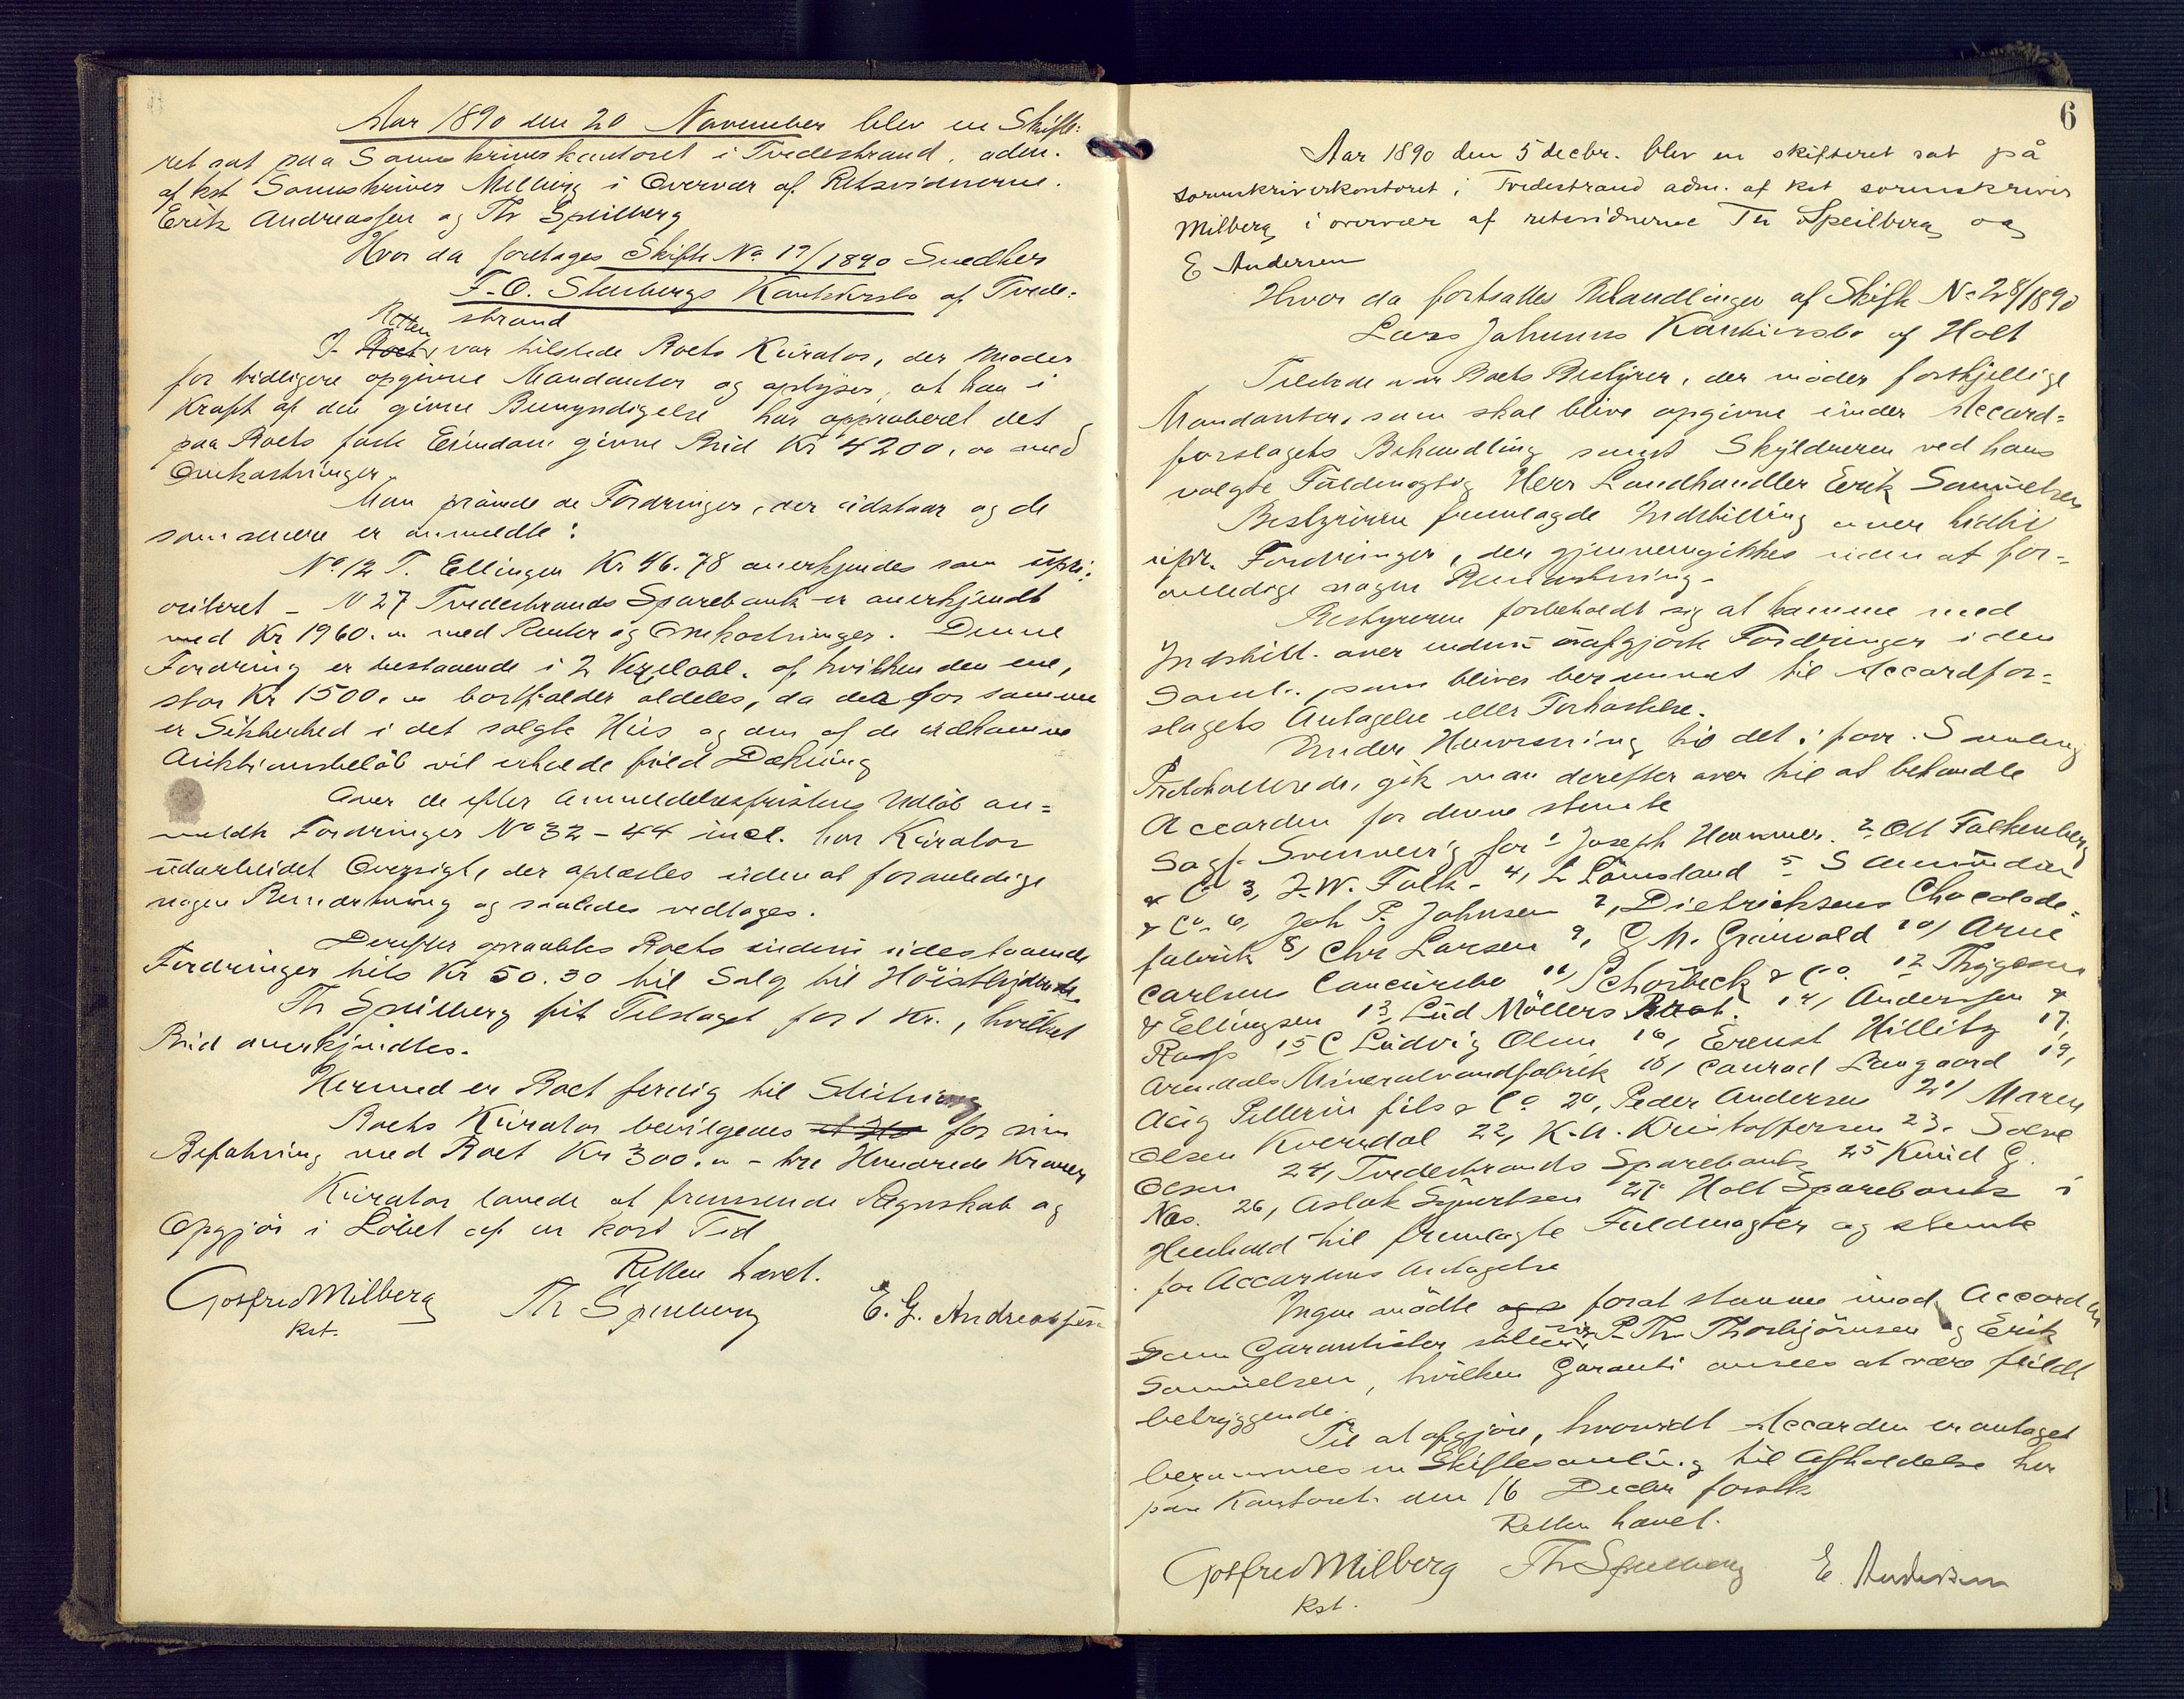 Aar 1890 den 20 November blev en Skifte-
ret sat paa Sorenskriverkontoret i Tvedestrand, adm.
af kst Sorenskriver Milberg i Overvær af Retsvidnerne.
Erik Andreassen og Th Speilberg
Hvor da foretages Skifte No 17/1890 Snedker
F. O. Stenbergs Konkursbo af Tvede-
strand
I Boet Retten var tilstede Boets Kurator, der møder
for tidligere opgivne Mandanter og oplyser, at han i
Kraft af den givne Bemyndigelse har approberet det
paa Boets faste Eiendom givne Bud Kr 4200,00 med
Omkostninger.
Man prøvede de Fordringer, der udstaar og de
som senere er anmeldte:
No 12 T. Ellingsen Kr 46.78 anerkjendes som upri-
oriteret – N 27 Tvedestrands Sparebank er anerkjendt
med Kr 1960.00 med Renter og Omkostninger. Denne
Fordring er bestaaende i 2 Vexelobl. af hvilken den ene,
stor Kr 1500.00 bortfalder aldeles, da der for samme
er Sikkerhed i det solgte Hus og den af de indkomne
Auktionsbeløb vil erholde fuld Dækning
Over de efter Anmeldelsesfristens Udløb an-
meldte Fordringer No 32 – 44 incl. har Kurator
udarbeidet Oversigt, der oplæstes uden at foranledige
nogen Bemærkning og saaledes vedtages.
Derefter opraabtes Boets endnu udestaaende
Fordringer tils Kr 50.30 til Salg til Høistbydende
Th Speilberg fik Tilslaget for 1 Kr., hvilket
Bud anerkjendtes.
Hermed er Boet færdig til Slutning
Boets Kurator bevilgedes for sin
Befatning med Boet Kr 300.00 – tre Hundrede Kroner
Kurator lovede at fremsende Regnskab og
Opgjør i Løbet af en kort Tid
Retten hævet.
Gotfred Milberg Th Speilberg E. G. Andreassen
kst.
6
Aar 1890 den 5 decbr. blev en skifteret sat på
sorenskriverkontoret i Tvedestrand adm. af kst sorenskriver
Milberg i overvær af retsvidnerne Th Speilberg og
E Andersen
Hvor da fortsattes Behandlingen af Skifte No 28/1890
Lars Johnsens Konkursbo af Holt
Tilstede var Boets Bestyrer, der møder forskjellige
Mandanter, som skal blive opgivne under Accord-
forslagets Behandling samt Skyldneren ved hans
valgte Fuldmægtig Herr Landhandler Erik Samuelsen
Bestyreren fremlagde Indstilling over hidtil
upr. Fordringer, der gjennemgikkes uden at for-
anledige nogen Bemærkning –
Bestyreren forbeholdt sig at komme med
Indstill. over endnu uafgjorte Fordringer i den
Saml., som bliver berammet til Accordfor-
slagets Antagelse eller Forkastelse.
Under Henvisning til det i forr. Samling
Protokollerede, gik man derefter over til at behandle
Accorden for denne stemte
Sagf. Svennevig for 1 Joseph Hammer. 2 Ole Falkenberg
& Co 3, F. W. Falk – 4, L Lømsland 5 S Amundsen
& Co. 6, Joh P. Johnsen 7, Dietrichsens Chocolade-
fabrik 8, Chr Larsen 9, O. M. Granvold 10, Arne
Carlsens Concursbo 11, Schøibeck & Co. 12 Thygesen
& Ellingsen 13, Lud Møllers Boet. 14, Anderssen &
Raufs 15 C Ludvig Olsen 16, Erenst Hillitz 17,
Arendals Mineralvandfabrik 18, Conrad Langaard 19,
Aug Pellerin fils & Co 20, Peder Andersen 21, Maren
Olsen Kversdal 22, K. A. Kristoffersen 23. Solve
Olsen 24, Tvedestrands Sparebank 25 Knud G.
Næs. 26, Aslak Sjivertsen 27. Holt Sparebank i
Henhold til fremlagte Fuldmagter og stemte
for Accordens Antagelse
Ingen mødte forat stemme imod Accorden
Som Garantister stillede sig P. Th. Thorbjørnsen og Erik
Samuelsen, hvilken Garanti ansees at være fuldt
betryggende.
Til at afgjøre, hvorvidt Accorden er antaget
berammes en Skiftesamling til Afholdelse her
paa Kontoret den 16 Decbr førstk
Retten hævet.
Gotfred Milberg Th Speilberg E. Andersen
kst.